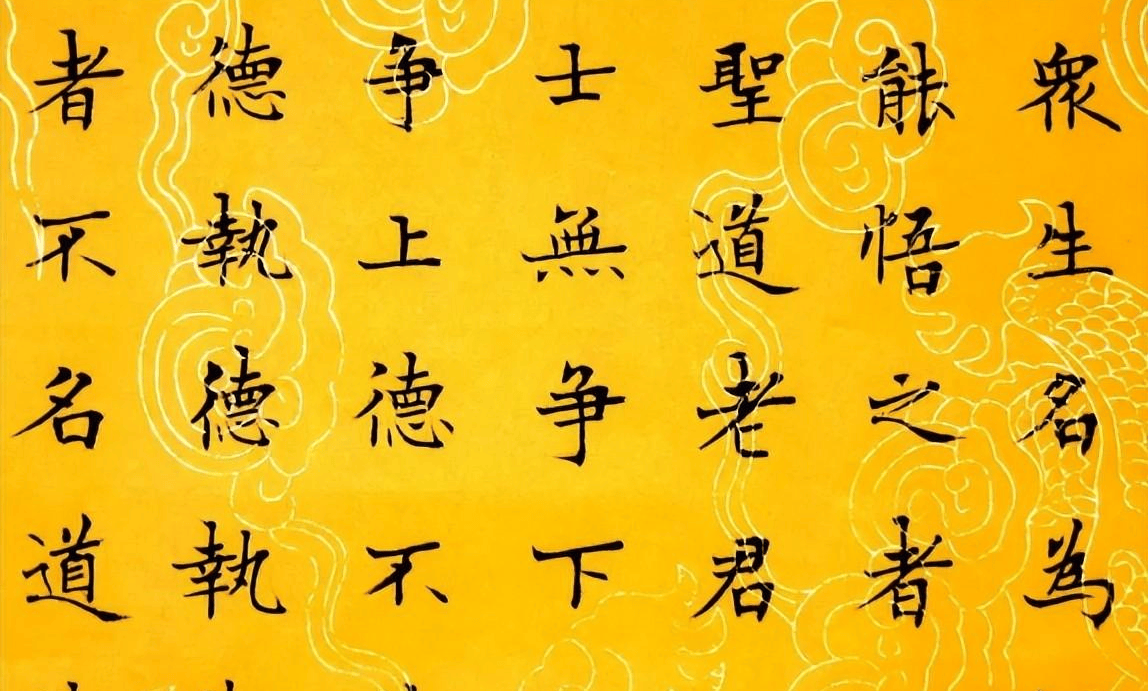 眾生名為
能悟之者
聖道老君
士無争下
争上德不
德執德執
者不名道